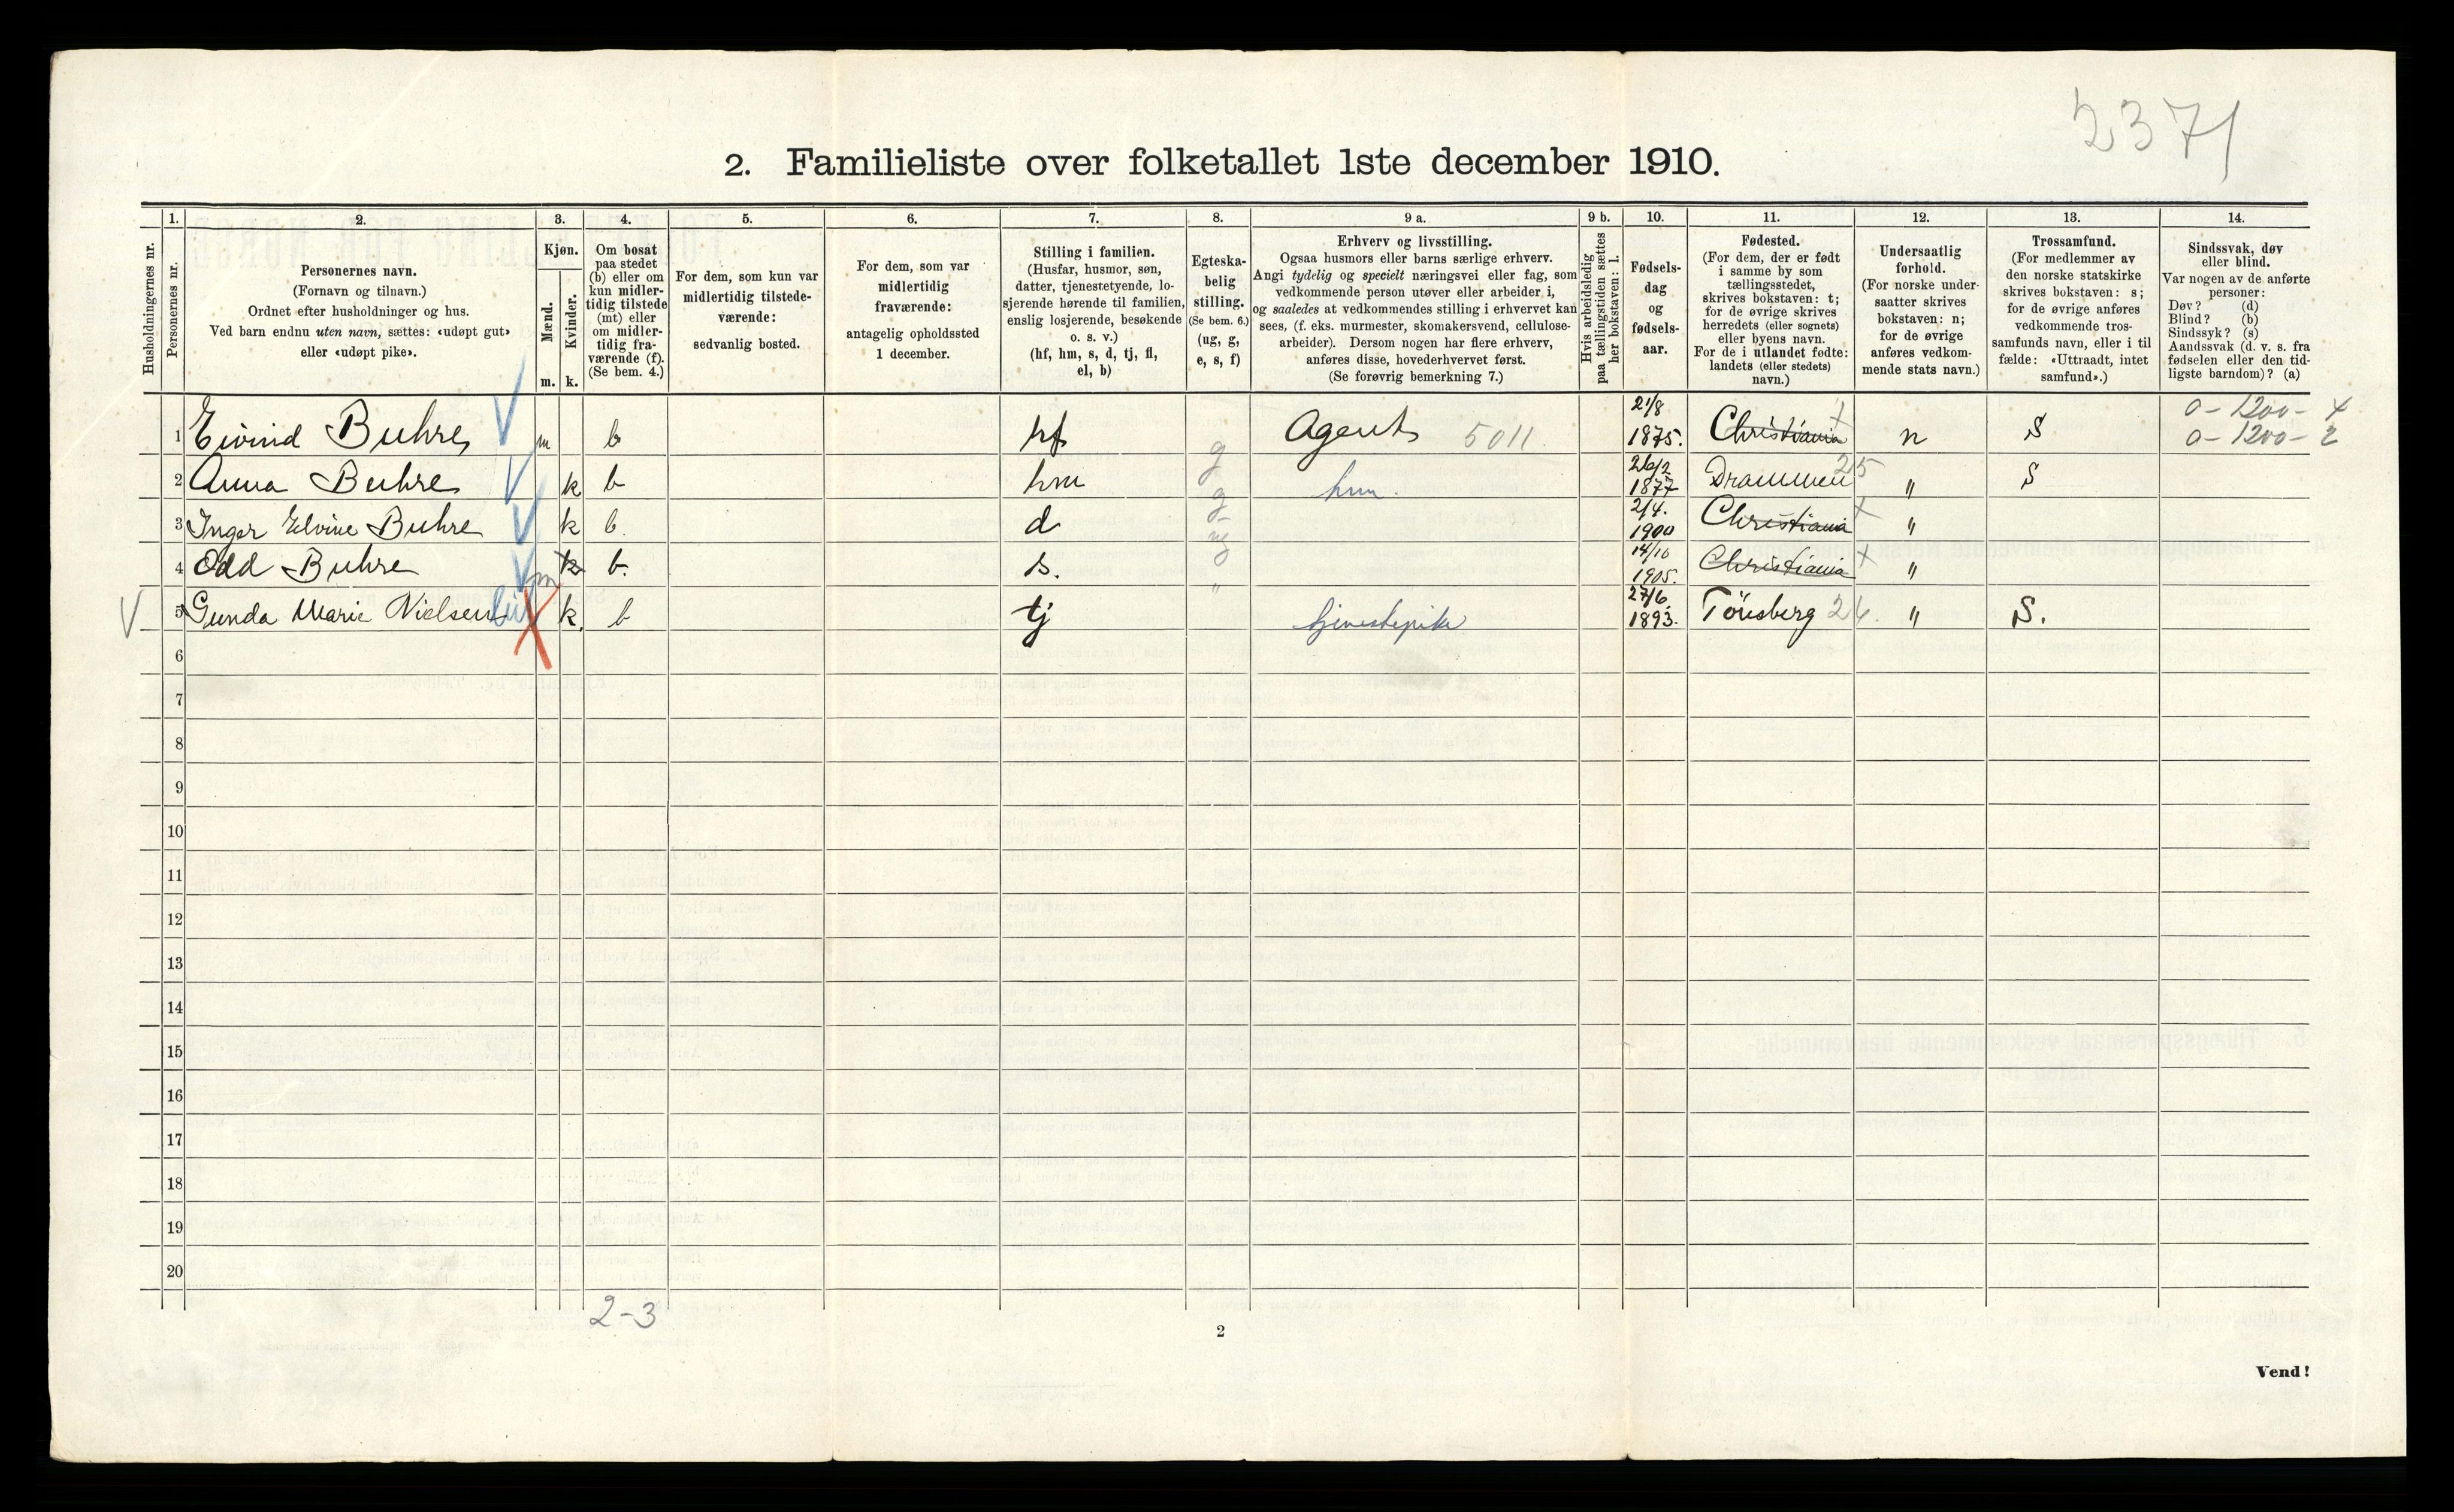 2371
2. Familieliste over folketallet 1ste december 1910.
Husholdningernes nr.
1. Personernes nr.
2. Personernes navn. (Fornavn og tilnavn.) Ordnet efter husholdninger og hus. Ved barn endnu uten navn, sættes: «udøpt gut» eller «udøpt pike».
3. Kjøn. Mænd. m. Kvinder. k.
4. Om bosat paa stedet (b) eller om kun midlertidig tilstede (mt) eller om midlertidig fraværende (f). (Se bem. 4.)
5. For dem, som kun var midlertidig tilstedeværende: sedvanlig bosted.
6. For dem, som var midlertidig fraværende: antagelig opholdssted 1 december.
7. Stilling i familien. (Husfar, husmor, søn, datter, tjenestetyende, losjerende hørende til familien, enslig losjerende, besøkende o. s. v.) (hf, hm, s, d, tj, fl, el, b)
8. Egteskabelig stilling. (Se bem. 6.) (ug, g, e, s, f)
9 a. Erhverv og livsstilling. Ogsaa husmors eller barns særlige erhverv. Angi tydelig og specielt næringsvei eller fag, som vedkommende person utøver eller arbeider i, og saaledes at vedkommendes stilling i erhvervet kan sees, (f. eks. murmester, skomakersvend, cellulosearbeider). Dersom nogen har flere erhverv, anføres disse, hovederhvervet først. (Se forøvrig bemerkning 7.)
9 b. Hvis arbeidsledig paa tællingstiden sættes her bokstaven: l.
10. Fødselsdag og fødselsaar.
11. Fødested. (For dem, der er født i samme by som tællingsstedet, skrives bokstaven: t; for de øvrige skrives herredets (eller sognets) eller byens navn. For de i utlandet fødte: landets (eller stedets) navn.)
12. Undersaatlig forhold. (For norske undersaatter skrives bokstaven: n; for de øvrige anføres vedkommende stats navn.)
13. Trossamfund. (For medlemmer av den norske statskirke skrives bokstaven: s; for de øvrige anføres vedkommende trossamfunds navn, eller i tilfælde: «Uttraadt, intet samfund».)
14. Sindssvak, døv eller blind. Var nogen av de anførte personer: Døv? (d) Blind? (b) Sindssyk? (s) Aandssvak (d. v. s. fra fødselen eller den tidligste barndom)? (a)
1 Eivind Buhre m b hf g Agent 5011 21/8 1875. Christiania n S 0-1200-4 0-1200-2
2 Anna Buhre k b hm g hm. 26/2 1877 Drammen 25 " S
3 Inger Elvine Buhre k b. d ug 2/4. 1900 Christiania "
4 Odd Buhre k m b. s. " 14/10 1905. Christiania "
5 Gunda Marie Nielsen k. b tj tjenestepike 27/6 1893. Tönsberg 26. " S.
6
7
8
9
10
11
12
13
14
15
16
17
18
19
20
2-3
2
Vend!